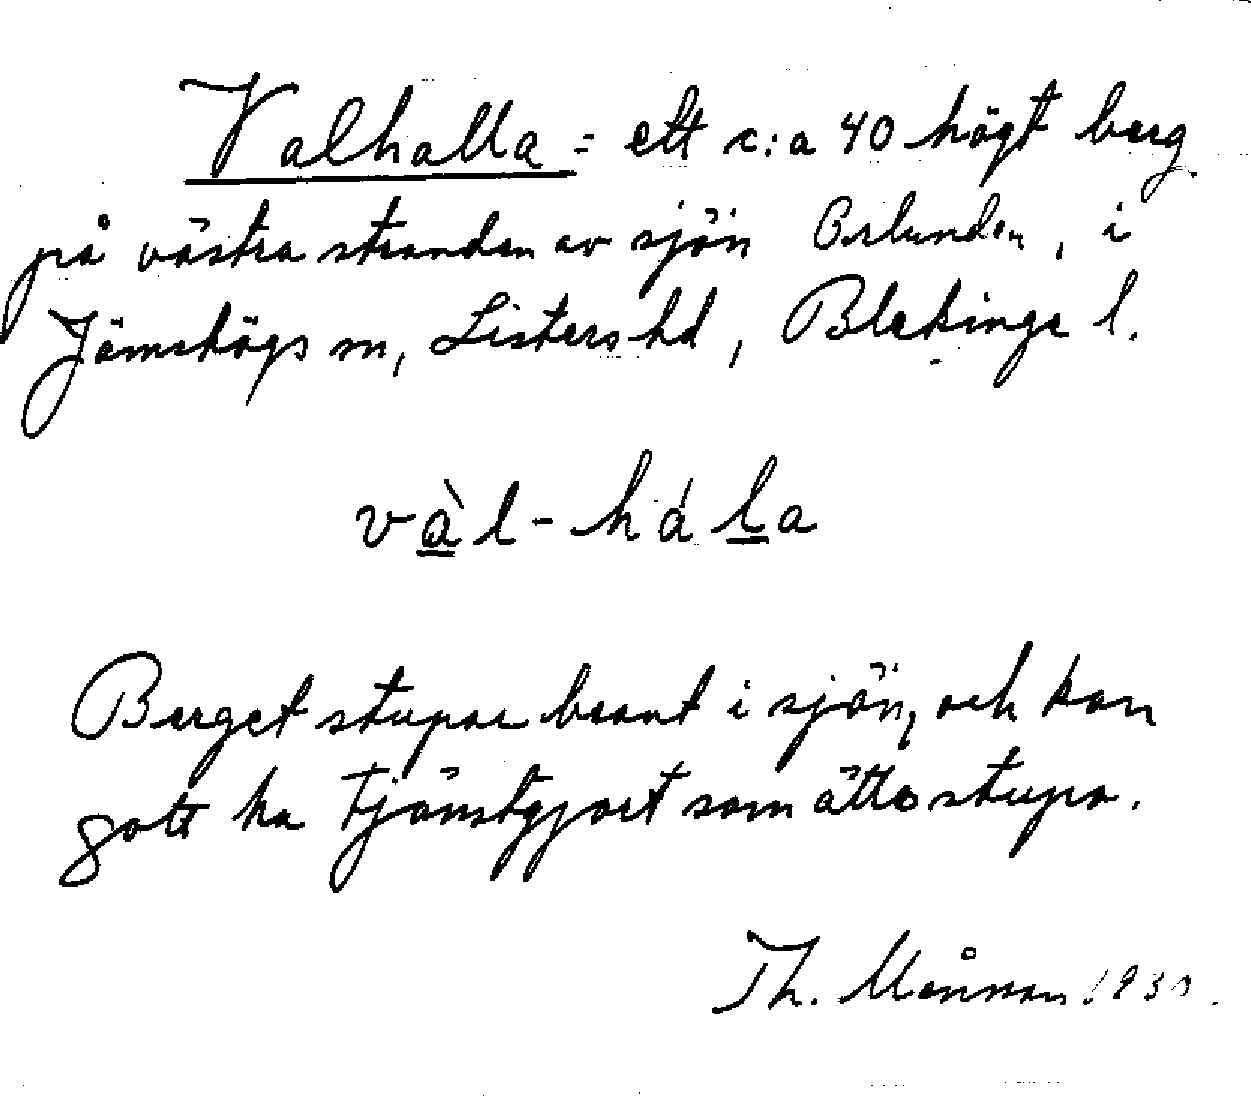 Valhalla = ett c:a 40 högt berg
på västra stranden av sjön Orlunden, i
Jämshögs sn, Listers hd, Blekinge l.
và̱l-háḻa
Berget stupar brant i sjön, och kan
gott ha tjänstgjort som ättestupa.
Th. Månsson 193